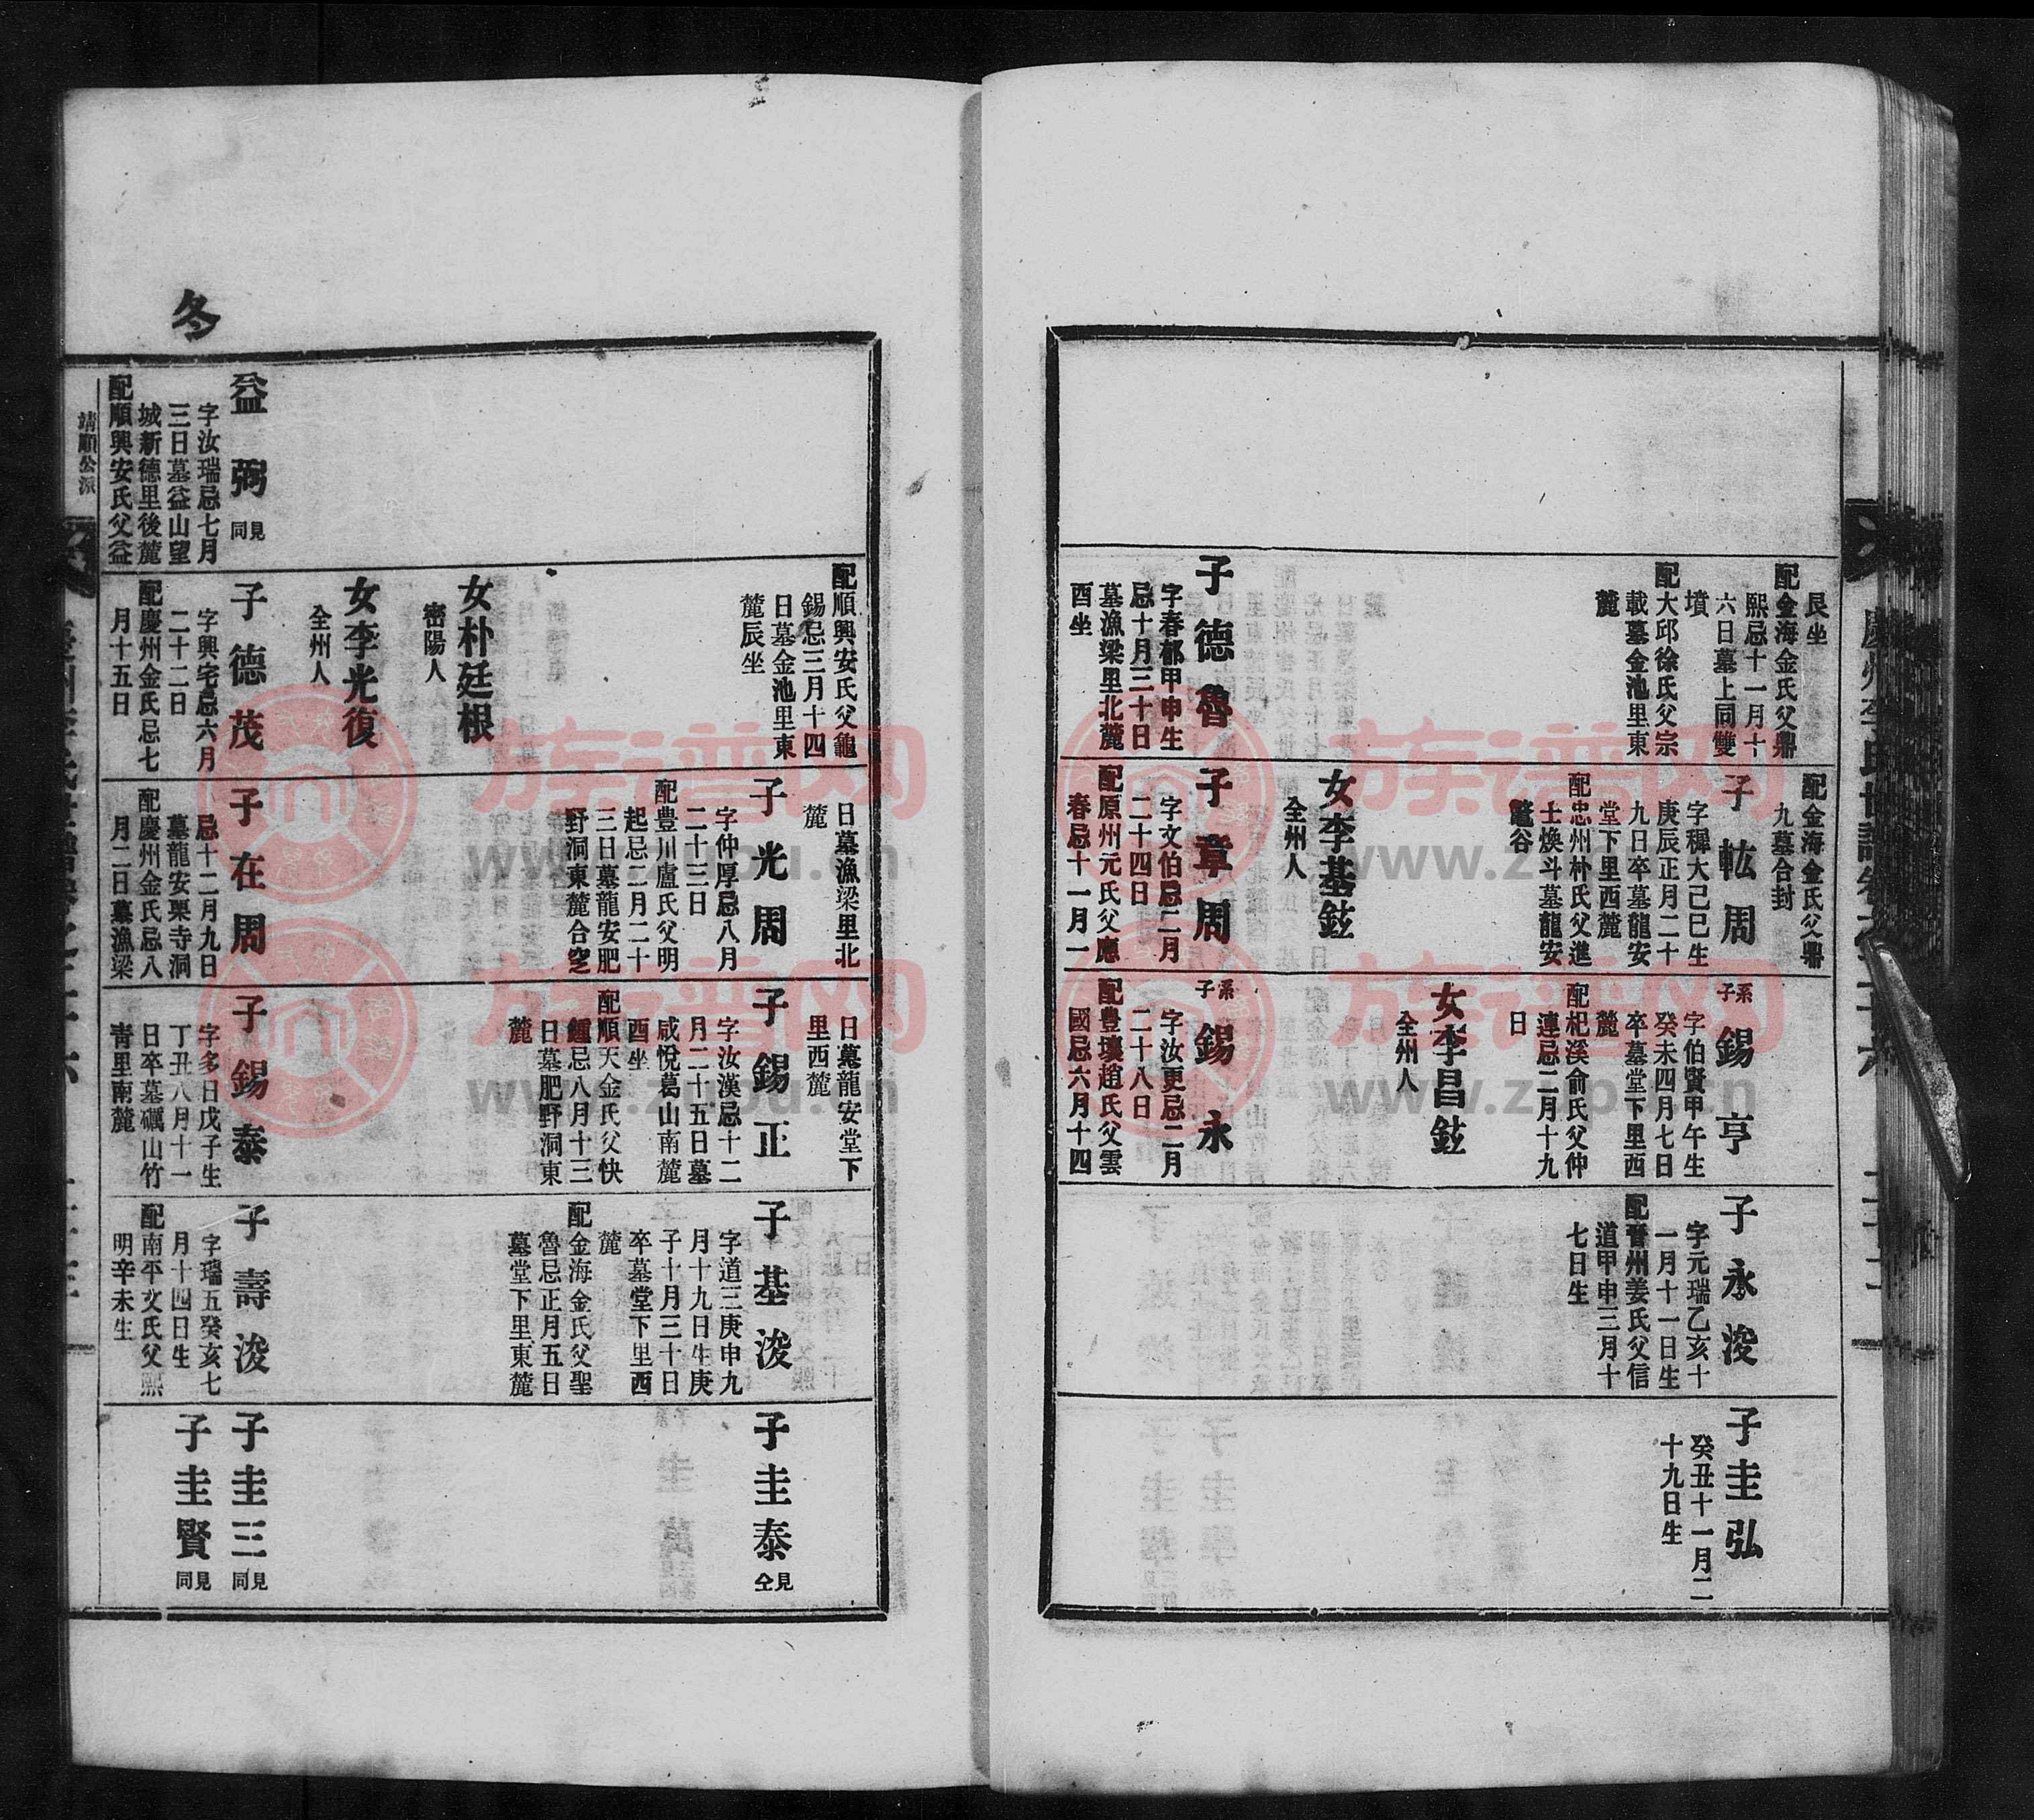 艮坐
配金海金氏父鼎
熙忌十一月十
六日墓上同雙
墳
配大邱徐氏父宗
載墓金池里東
麓
子德魯
字春郁甲申生
忌十月三十日
墓漁梁里北麓
酉坐
配金海金氏父鼎
九墓合封
子紘周
字穉大己巳生
庚辰正月二十
九日卒墓龍安
堂下里西麓
配忠州朴氏父進
士煥斗墓龍安
蓮谷
女李基鉉
全州人
子章周
字文伯忌二月
二十四日
配原州元氏父應
春忌十一月一
系子錫亨
字伯賢甲午生
癸未四月七日
卒墓堂下里西
麓
配杞溪俞氏父仲
連忌二月十九
日
女李昌鉉
全州人
系子錫永
字汝更忌二月
二十八日
配豊壤趙氏父雲
國忌六月十四
子永浚
字元瑞乙亥十
一月十一日生
配晉州姜氏父信
道甲申三月十
七日生
子圭弘
癸丑十一月二
十九日生
配順興安氏父龜
錫忌三月十四
日墓金池里東
麓辰坐
女朴廷根
密陽人
女李光復
全州人
日墓漁梁里北
麓
子光周
字仲厚忌八月
二十三日
配豊川盧氏父明
起忌二月二十
三日墓龍安肥
野洞東麓合窆
日墓龍安堂下
里西麓
子錫正
字汝漢忌十二
月二十五日墓
咸悅葛山南麓
酉坐
配順天金氏父快
鍾忌八月十三
日墓肥野洞東
麓
子基浚
字道三庚申九
月十九日生庚
子十月三十日
卒墓堂下里西
麓
配金海金氏父聖
魯忌正月五日
墓堂下里東麓
子圭泰 見仝
冬
益弼 見同
字汝瑞忌七月
三日墓益山望
城新德里後麓
配順興安氏父益
子德茂
字興宅忌六月
二十二日
配慶州金氏忌七
月十五日
子在周
忌十二月九日
墓龍安栗寺洞
配慶州金氏忌八
月二日墓漁梁
子錫泰
字多日戊子生
丁丑八月十一
日卒墓礪山竹
靑里南麓
子壽浚
字瑞五癸亥七
月十四日生
配南平文氏父熙
明辛未生
子圭三 見同
子圭賢 見同
靖順公派
族谱网
www.zupu.cn
族谱网
www.zupu.cn
族谱网
www.zupu.cn
族谱网
www.zupu.cn